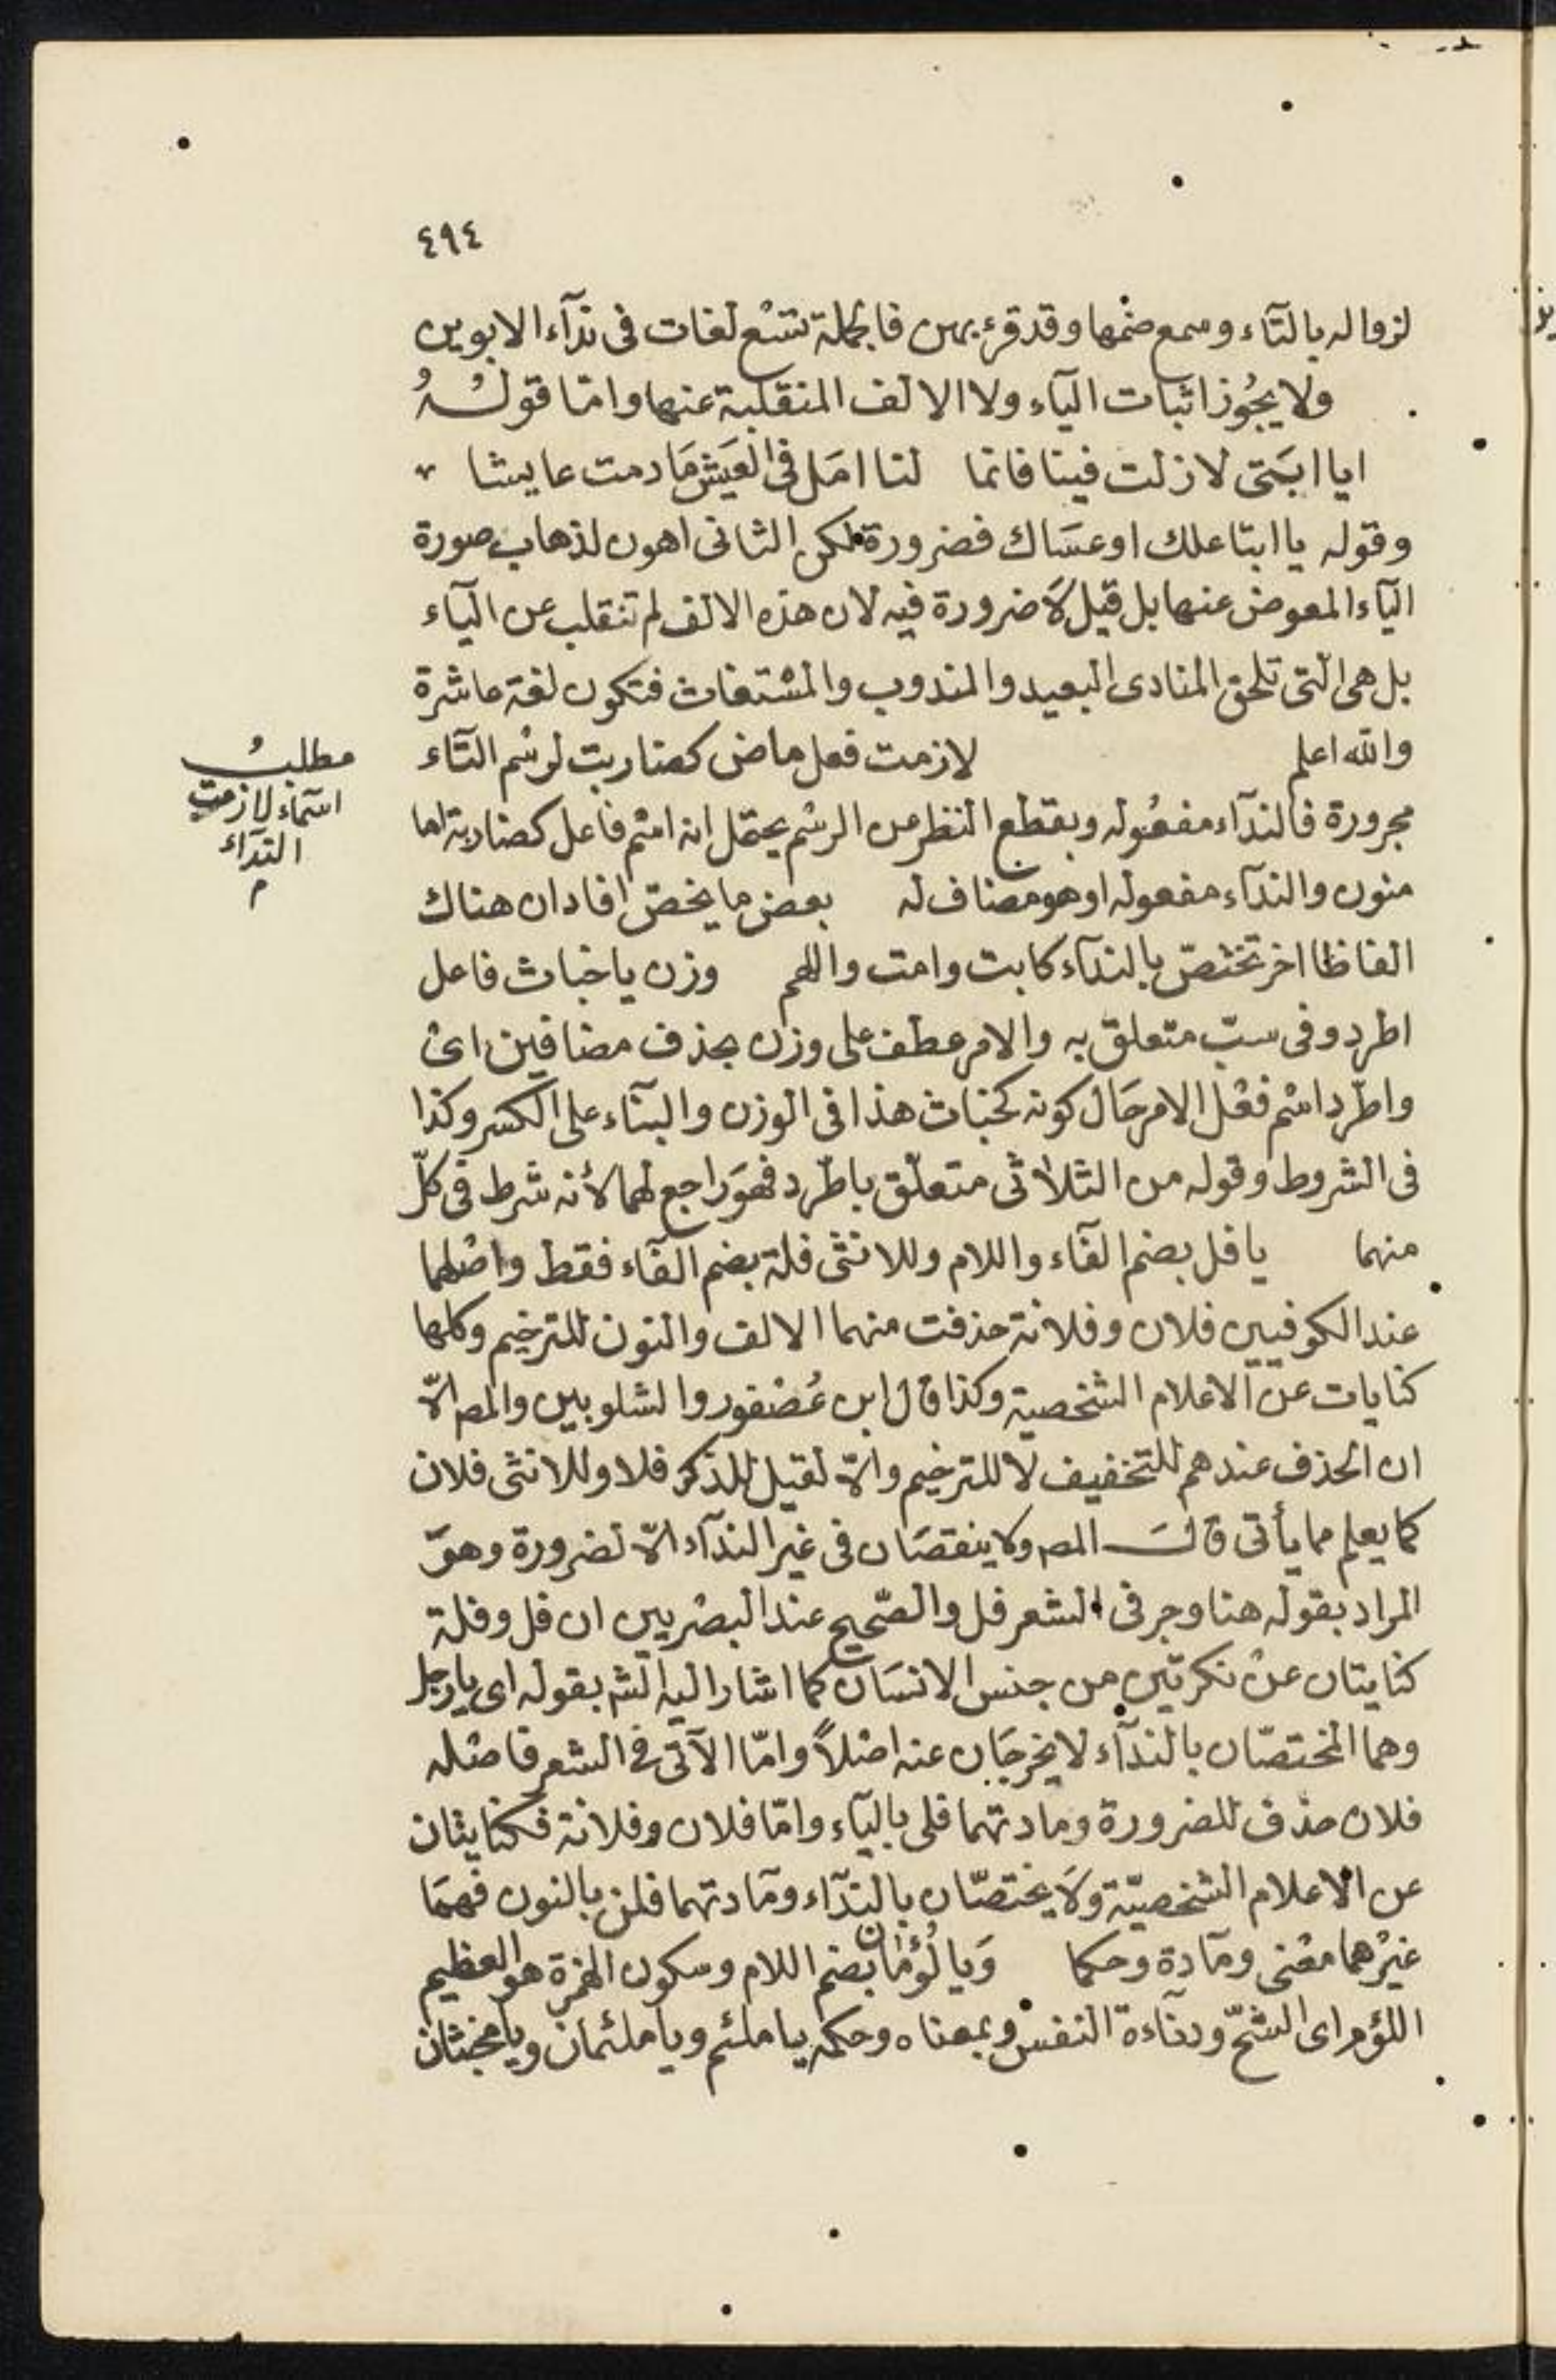 ٤٩٤
لزواله بالتآء وسمع ضمها وقد قرئ بهن فالجملة تسع لغات فى ندآء الابوين
ولا يجُوز اثبات اليآء ولا الالف المنقلبة عنها وامّا قولــهُ
ايا ابَتى لازلت فينا فانما لنا امَل فى العَيش مَا دمت عايشا
وقوله يا ابتا علك او عسَاك فضرورة لكن الثانى اهون لذهاب صورة
اليآء المعوض عنها بل قيل لاَ ضرورة فيه لان هذه الالف لم تنقلب عن اليآء
بل هى التى تلحق المنادى البعيد والمندوب والمسْتغاث فتكون لغة عاشرة
والله اعلم لازمت فعل ماض كضاربت لرسْم التآء
مطلبُ
اسمآء لازمت
الندآء
م
مجرورة فالندآء مفعُوله وبقطع النظر عن الرسْم يحتمل انه اسْم فاعل كضاربة اما
منون والندآء مفعوله او هو مضاف له بعض ما يخصّ افاد ان هناك
الفاظا اخر تختصّ بالندآء كابت وامت واللهم وزن يا خباث فاعل
اطرد وفى سبّ متعلق به والامر عطف على وزن بحذف مضافين اىْ
واطّرد اسْم فعْل الامر حَال كونه كخباث هذا فى الوزن والبنآء على الكسر وكذا
فى الشروط وقوله من الثلاثى متعلّق باطّرد فهوَ راجع لهما لأنه شرط فى كلّ
منهما يا فل بضم الفآء واللام وللانثى فلة بضم الفآء فقط واصْلهما
عند الكوفيين فلان وفلانة حذفت منهما الالف والنون للترخيم وكلها
كنايات عن الاعلام الشخصية وكذا قال ابن عُصْفور والشلوبين والمص الاّ
ان الحذف عندهم للتخفيف لا للترخيم والاّ لقيل للذكر فلا وللانثى فلان
كما يعلم مما يأتى قالــَ المص ولا ينقصَان فى غير الندآء الاّ لضرورة وهوَ
المراد بقوله هنا وجر فى الشعر فل والصّحيح عند البصْريين ان فل وفلة
كنايتان عنْ نكرتين من جنس الانسَان كما اشار اليه الشه بقوله اى يا رجل
وهما المختصّان بالندآء لا يخرجَان عنه اصْلاً وامّا الآتى فى الشعر فاصْله
فلان حذف للضرورة ومادتهما فلى باليآء وامّا فلان وفلانة فكنايتان
عن الاعلام الشخصيّة ولاَ يختصّان بالندآء ومَادتهما فلن بالنون فهمَا
غيرْهما معْنى ومَادة وحكما وَيا لُوْمَان بضم اللام وسكون الهمزة هو العظيم
اللؤم اى الشحّ ودنآءة النفس وبمعناه وحكمه يا ملئم ويا ملئمان ويا مخبثان